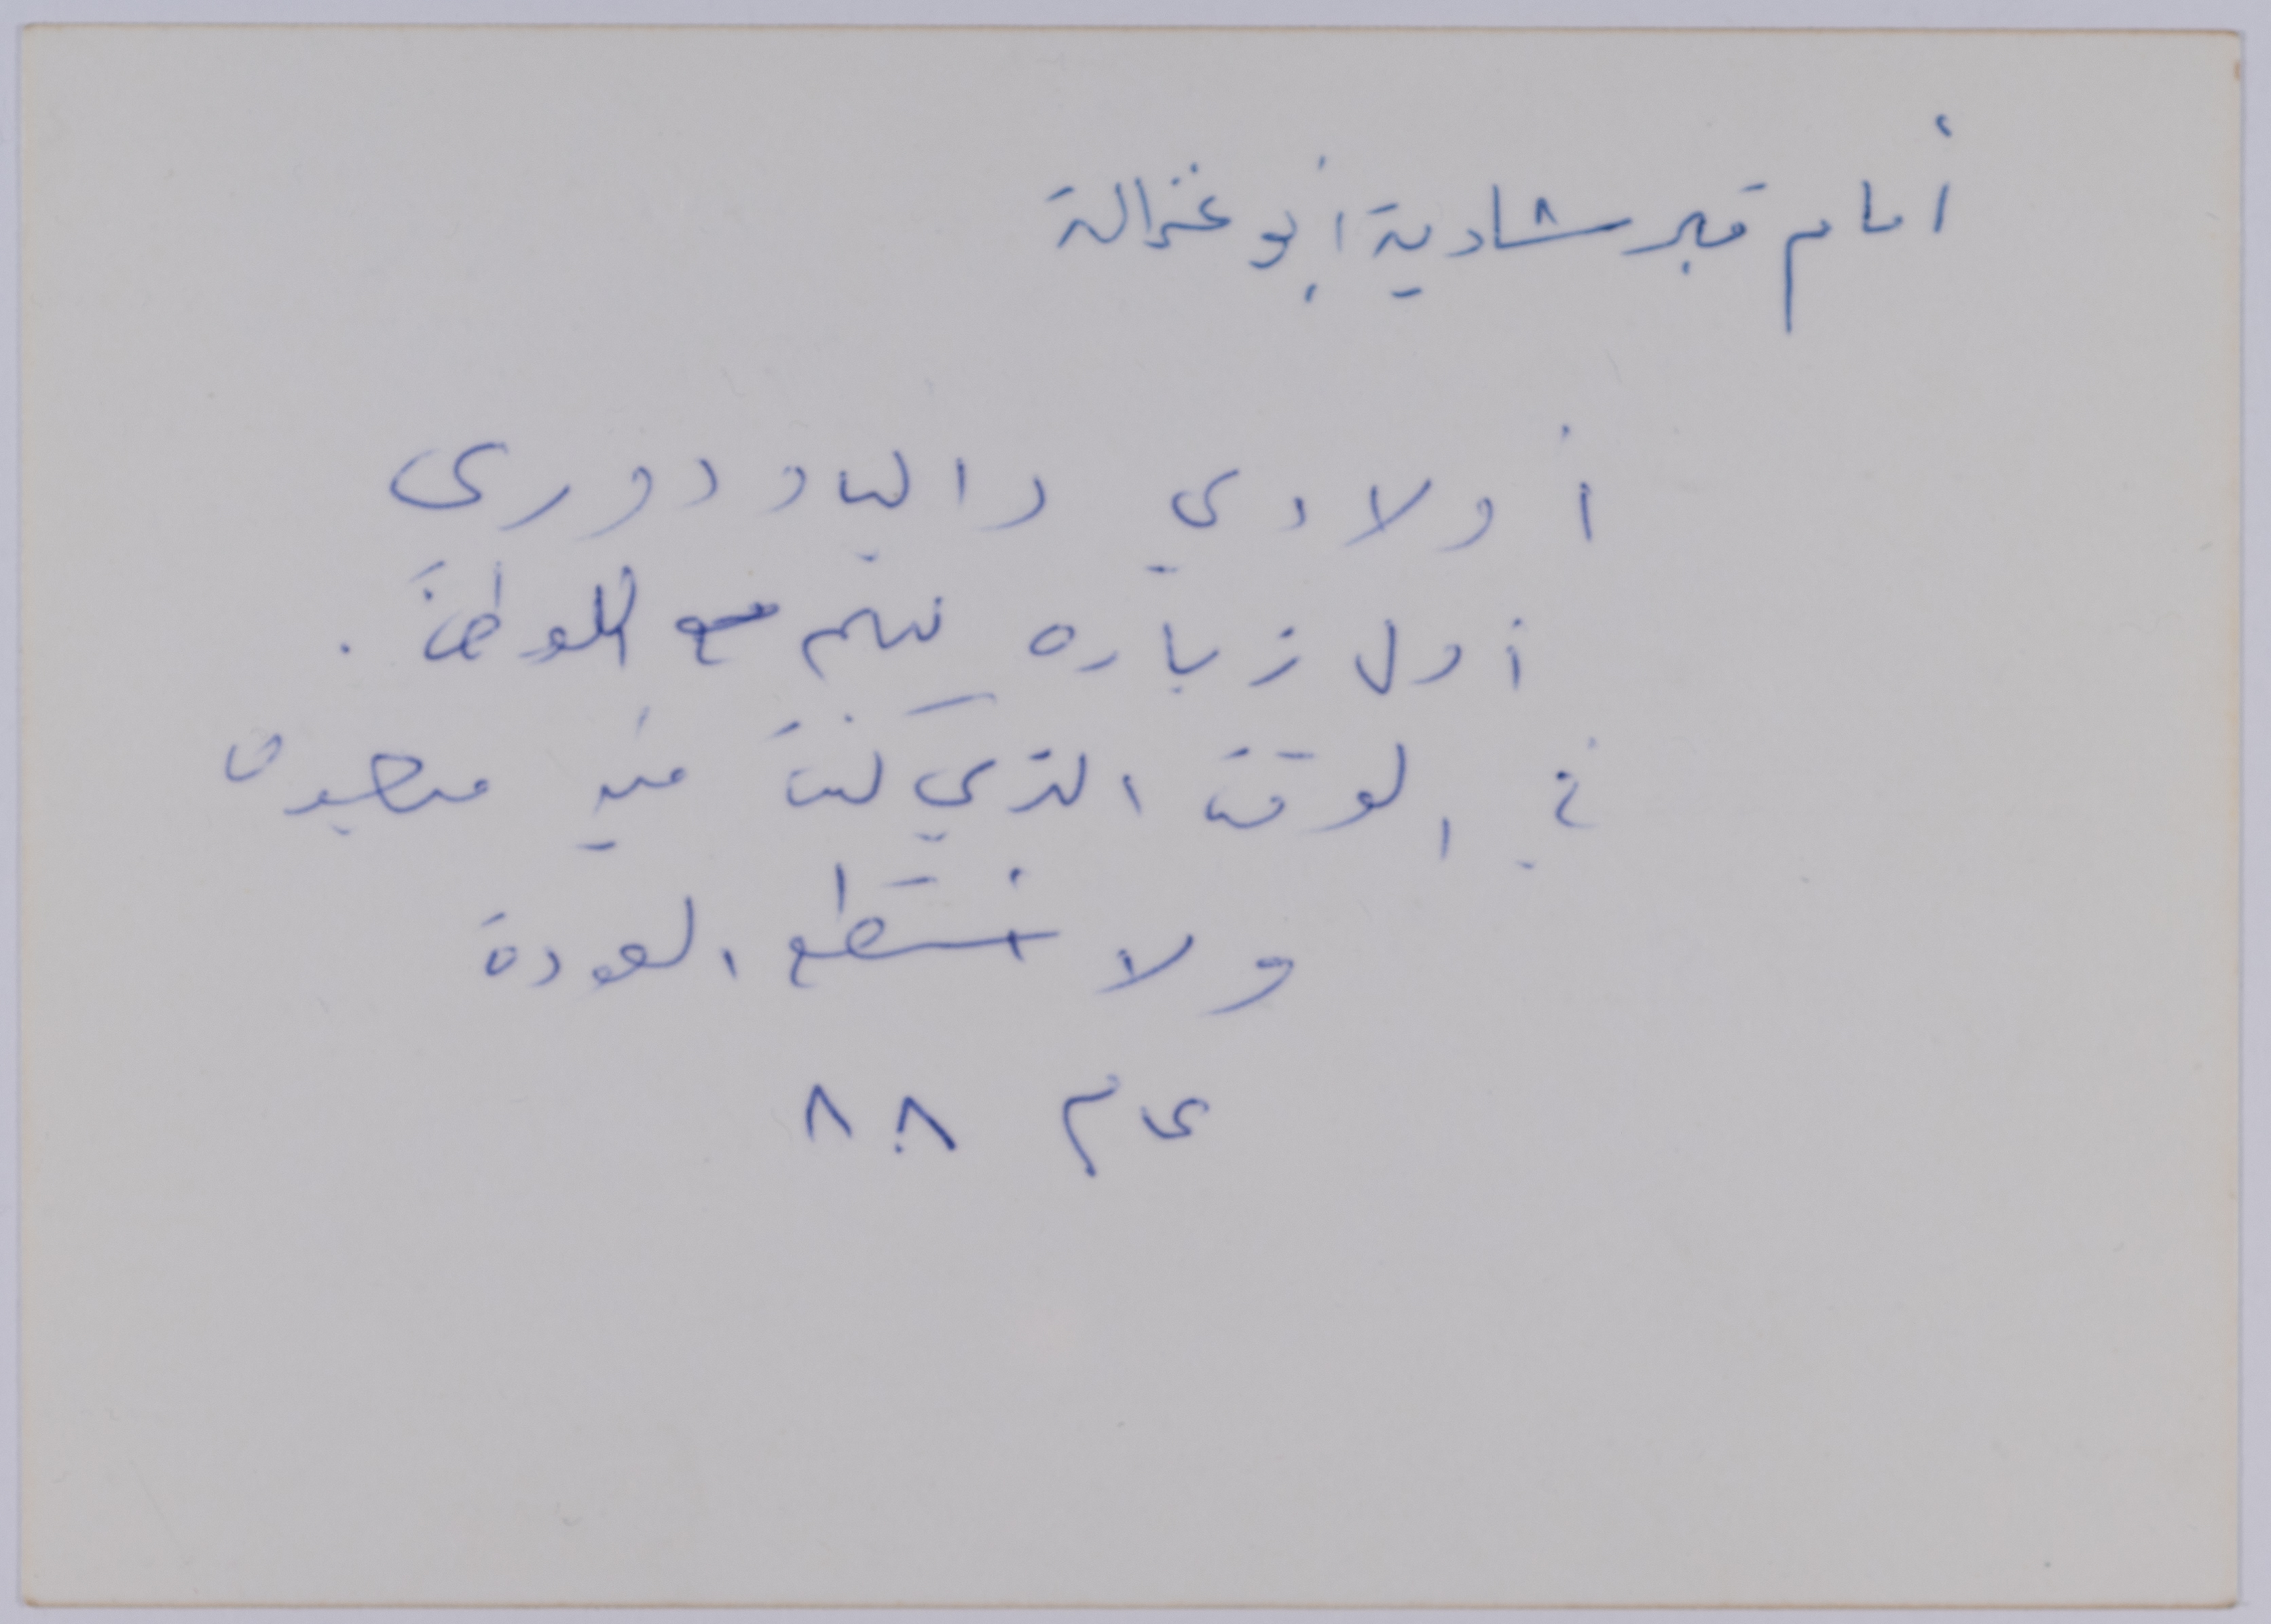 أمام قبر شادية أبو غزالة
أولادي داليا ودوري
أول زياره لهم مع الوطن .
في الوقت الذي كنت فيه
ولا نستطع العودة
عام ٨٨